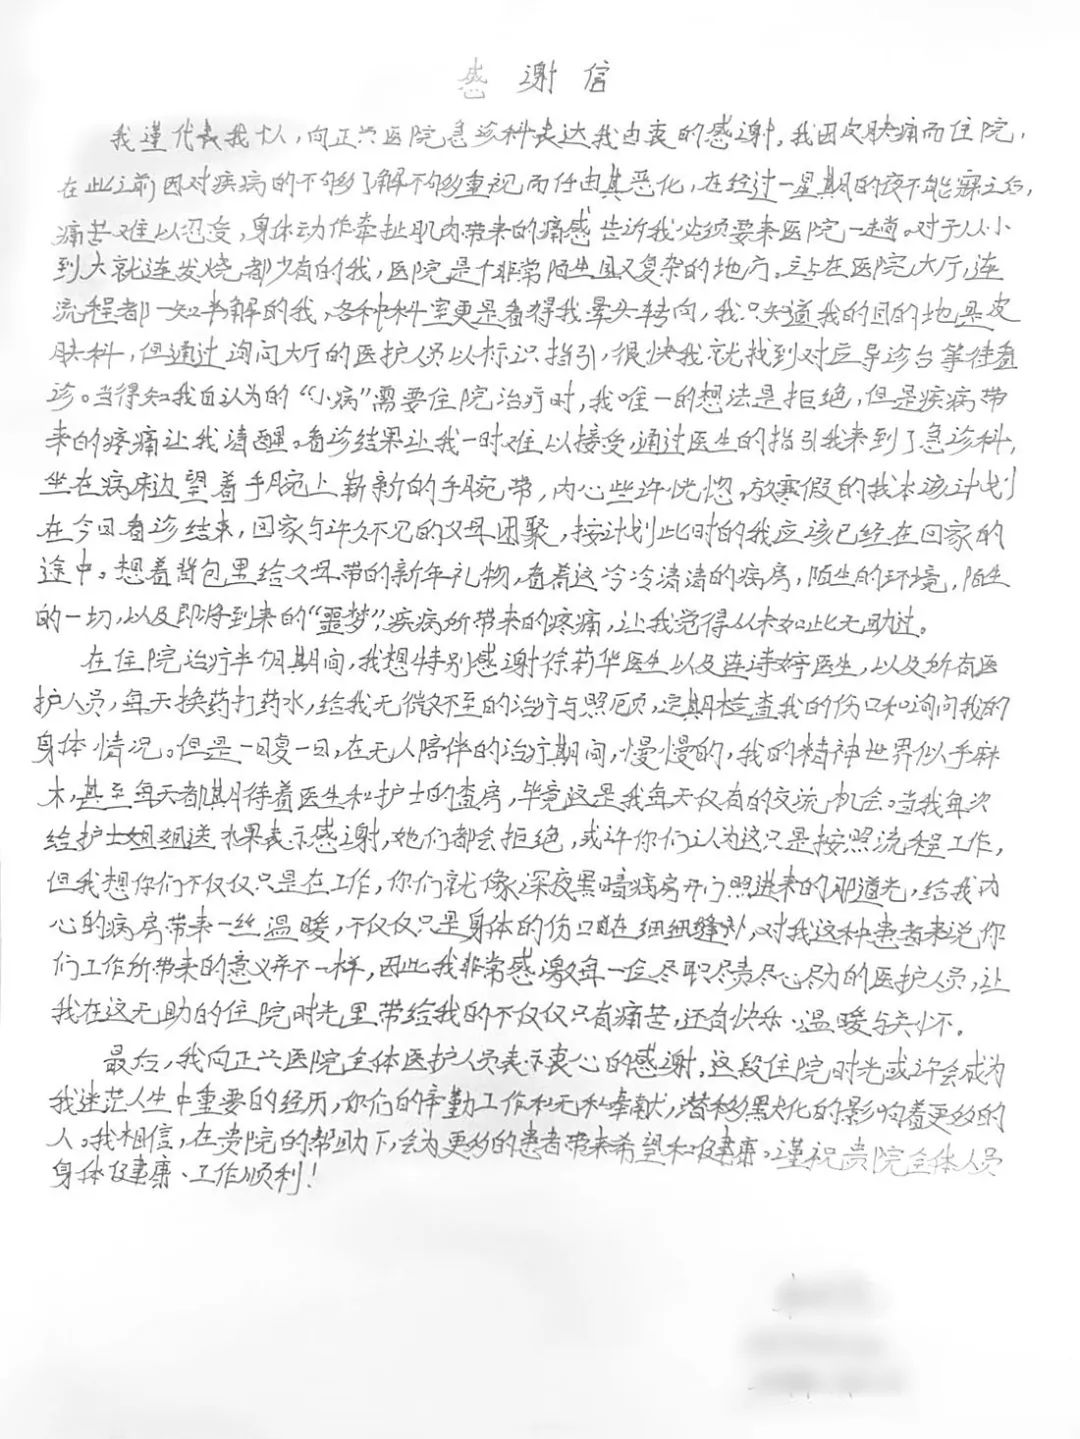 感谢信
我谨代表我个人，向正兴医院急诊科表达我由衷的感谢，我因皮肤痛而住院，
在此之前因对疾病的不够了解不够重视而任由其恶化，在经过一星期的夜不能寐之后，
痛苦难以忍受，身体动作牵扯肌肉带来的痛感告诉我必须要来医院一趟。对于从小
到大就连发烧都少有的我，医院是个非常陌生且又复杂的地方。站在医院大厅，连
流程都一知半解的我，各种科室更是看得我晕头转向，我只知道我的目的地是皮
肤科，但通过询问大厅的医护人员以标识指引，很快我就找到对应导诊台等待看
诊。当得知我自认为的“小病”需要住院治疗时，我唯一的想法是拒绝，但是疾病带
来的疼痛让我清醒。看诊结果让我一时难以接受，通过医生的指引我来到了急诊科，
坐在病床边望着手腕上崭新的手腕带，内心些许恍惚。放寒假的我本该计划
在今日看诊结束，回家与许久不见的父母团聚，按计划此时的我应该已经在回家的
途中。想着背包里给父母带的新年礼物，看着这冷冷清清的病房，陌生的环境，陌生
的一切，以及即将到来的“噩梦”，疾病所带来的疼痛，让我觉得从未如此无助过。
在住院治疗半个月期间，我想特别感谢徐莉华医生以及连诗婷医生，以及所有医
护人员，每天换药打药水，给我无微不至的治疗与照顾，定期检查我的伤口和询问我的
身体情况。但是一日复一日，在无人陪伴的治疗期间，慢慢的，我的精神世界似乎麻
木，甚至每天都期待着医生和护士的查房，毕竟这是我每天仅有的交流机会。当我每次
给护士姐姐送水果表示感谢，她们都会拒绝，或许你们认为这只是按照流程工作，
但我想你们不仅仅只是在工作，你们就像深夜黑暗病房开门照进来的那道光，给我内
心的病房带来一丝温暖，不仅仅只是身体的伤口在细细缝补，对我这种患者来说你
们工作所带来的意义并不一样，因此我非常感激每一位尽职尽责尽心尽力的医护人员，让
我在这无助的住院时光里带给我的不仅仅只有痛苦，还有快乐、温暖与关怀。
最后，我向正兴医院全体医护人员表示衷心的感谢，这段住院时光或许会成为
我迷茫人生中重要的经历，你们的辛勤工作和无私奉献，潜移默化的影响着更多的
人。我相信，在贵院的帮助下，会为更多的患者带来希望和健康。谨祝贵院全体人员
身体健康、工作顺利！